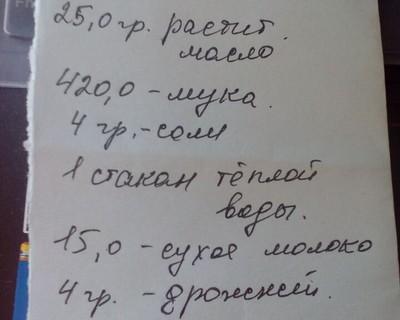 25,0 гр. растит.
масло
420,0 - мука.
4 гр. - соли
1 стакан тёплой
воды.
15,0 - сухое молоко
4 гр. - дрожжей.